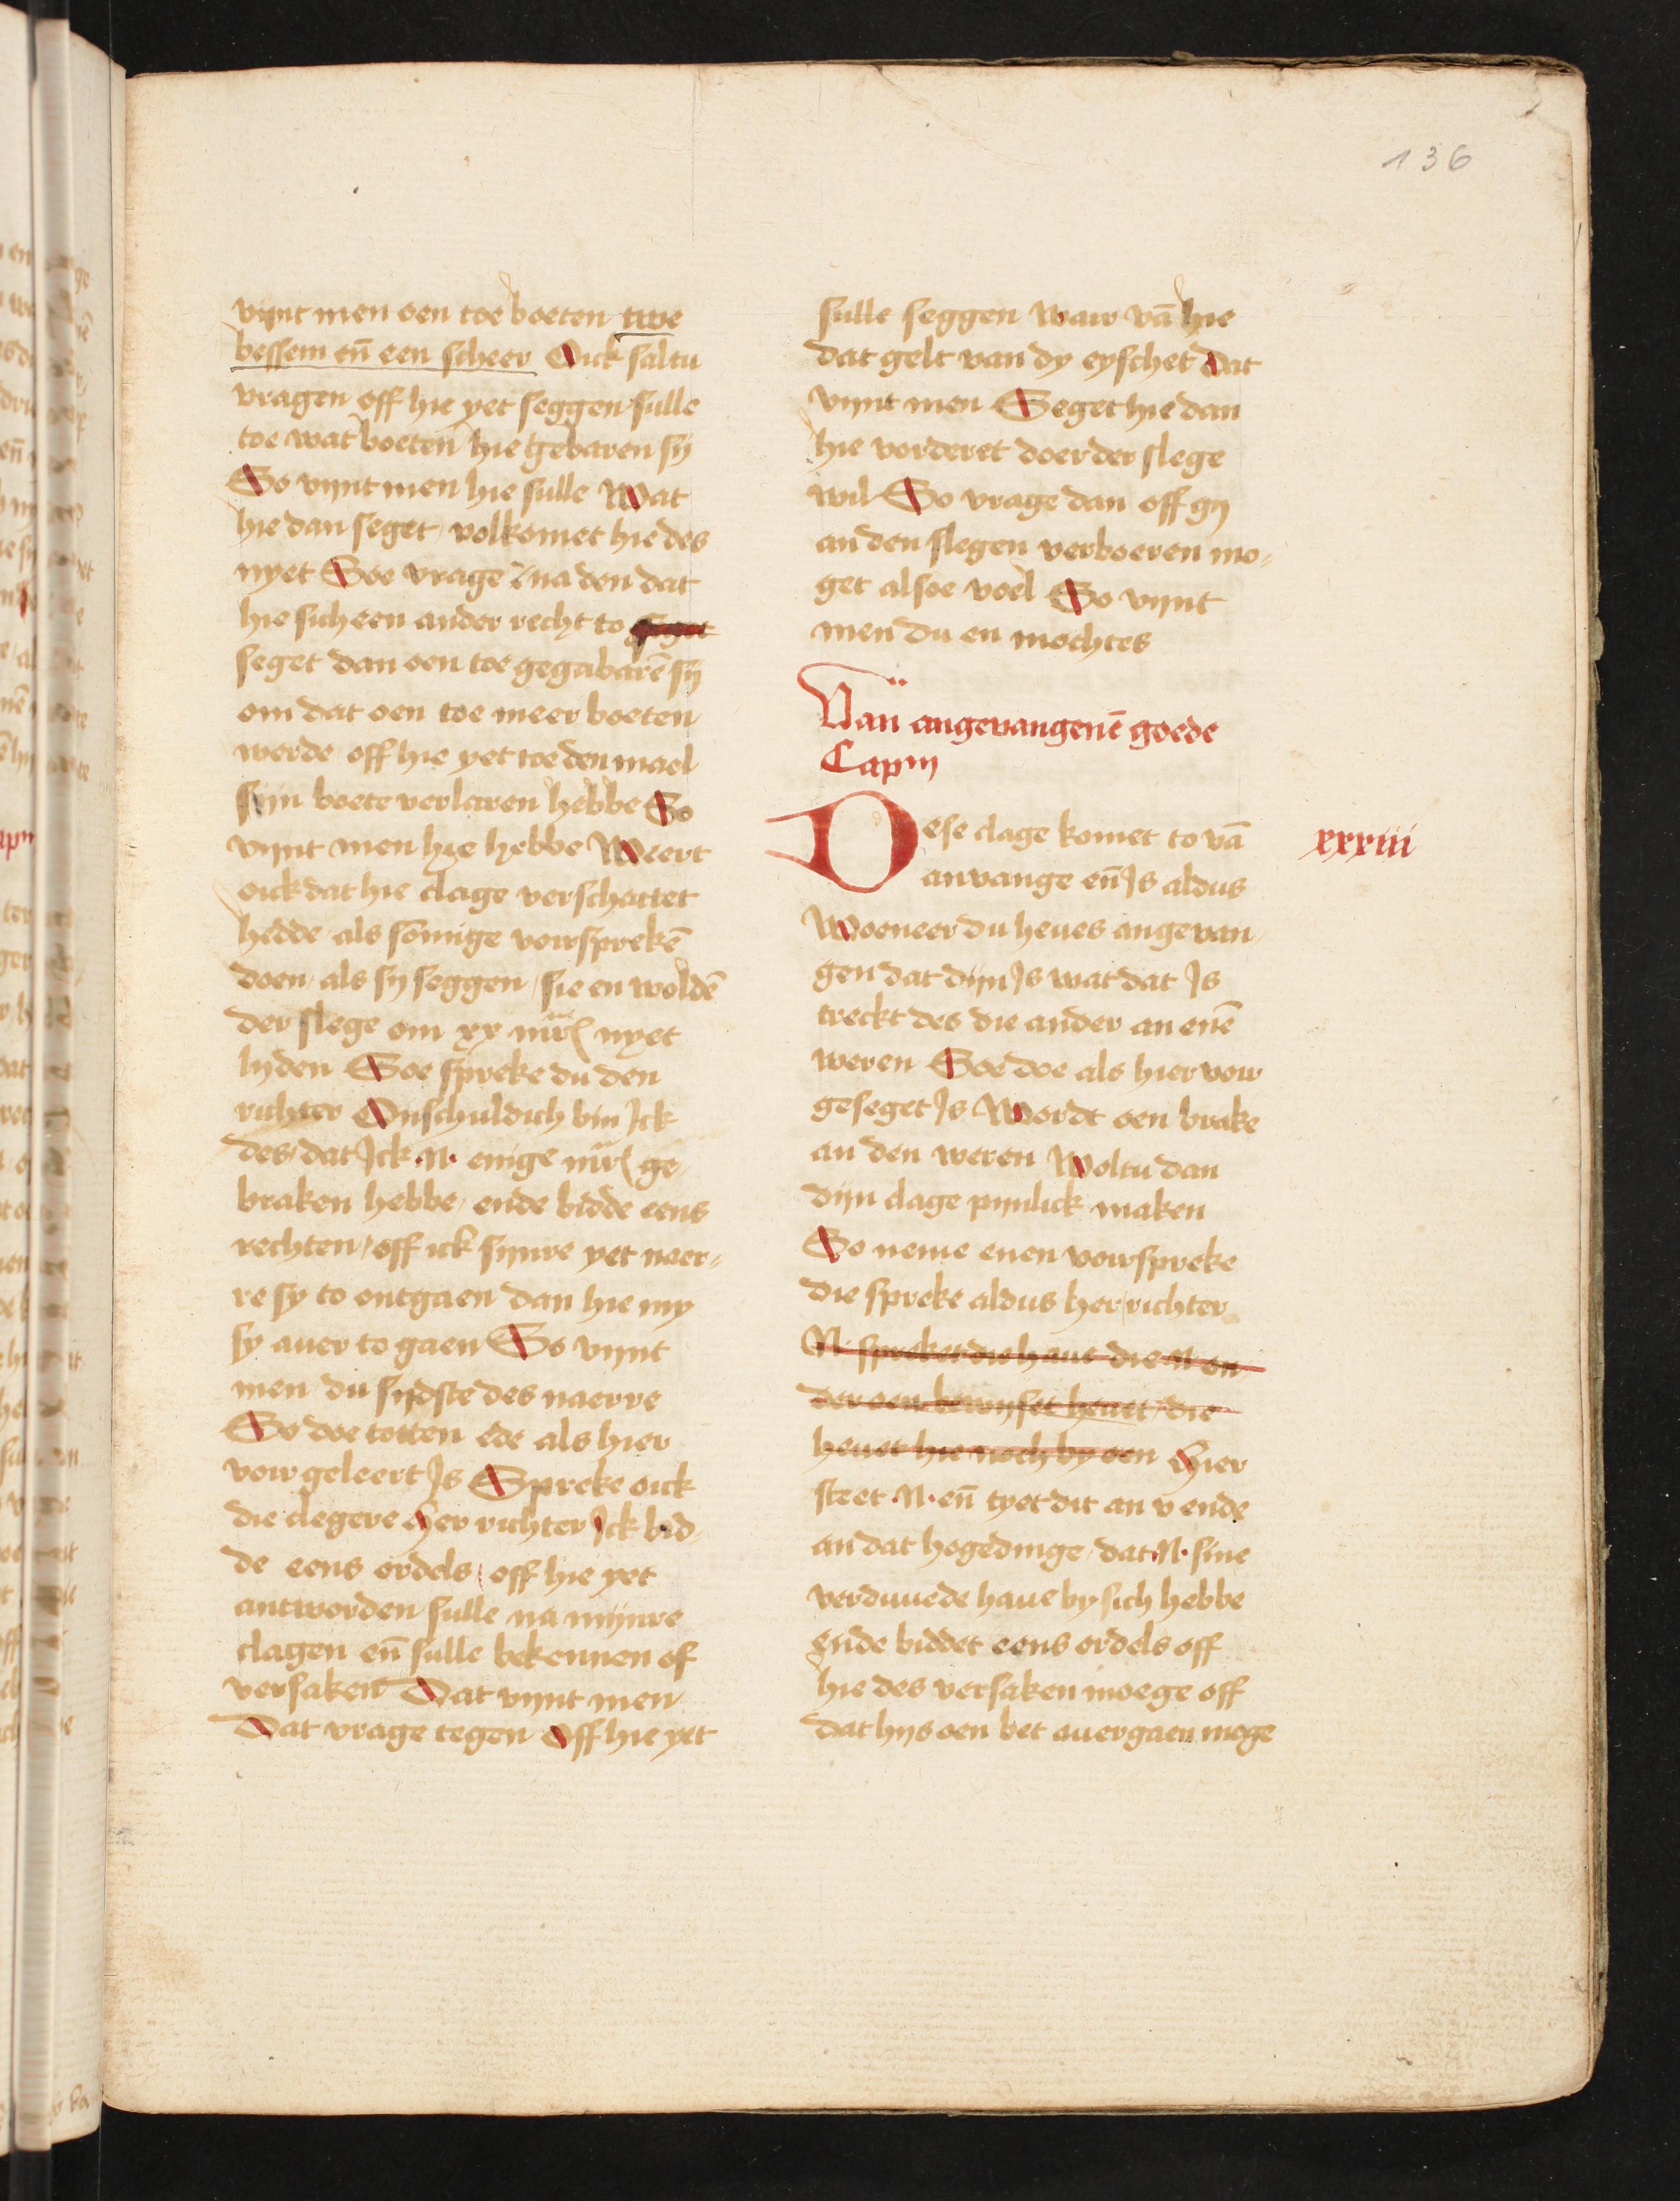 136
vijnt men oen toe boeten twe
bessem en̄ een scheer Oick saltu
vragen off hie yet seggen sulle
toe wat boeten hie gebaren sij
So vijnt men hie sulle Wat
hie dan seget volkomet hie des
nyet Soe vrage na den dat
hie sich een ander recht to
seget dan oen toe gegabarē sij
om dat oen toe meer boeten
werde off hie yet toe den mael
sijn boete verlaren hebbe So
vijnt men hie hebbe Weert
oick dat hie clage verschattet
hedde als somige vorsprekē
doen als sy seggen sie en woldē
der slege om xx nyet
lyden Soe spreke du den
richter Onschuldich bin Ick
des dat Ick .N. enige ge
braken hebbe ende bidde eens
rechten off ick sijnre yet naer-
re sy to ontgaen dan hie my
sy auer to gaen So vijnt
men du sijdste des naerre
So doe totten ede als hier
vor geleert Is Spreke oick
die clegere Her richter Ick bid
de eens ordels off hie yet
antworden sulle na mijnre
clagen en̄ sulle bekennen of
versaken Dat vijnt men
Dat vrage tegen Off hie yet
sulle seggen War vā hie
dat gelt van dy eyschet Dat
vijnt men Seget hie dan
hie vorderet doer der slege
wil So vrage dan off gy
an den slegen verboeren mo-
get alsoe voel So vijnt
men du en mochtes
Van angevangenē goede
Capm
xxxiii
Dese clage komet to vā
anvange en̄ Is aldus
Woeneer du heues angevan
gen dat dijn Is wat dat Is
treckt des die ander an enē
weren Soe doe als hier vor
geseget Is Wordt oen brake
an den weren Woltu dan
dijn clage pijnlick maken
So neme enen vorspreke
die spreke aldus her richter
N. spreket die haue die N en
der oen bewijset heuet die
heuet hie noch by oen Hier
steet .N. en̄ tyet dit an v ende
an dat hogedinge dat .N. sine
verduuede haue by sich hebbe
ende biddet eens ordels off
hie des versaken moege off
dat hijs oen bet auergaen moge